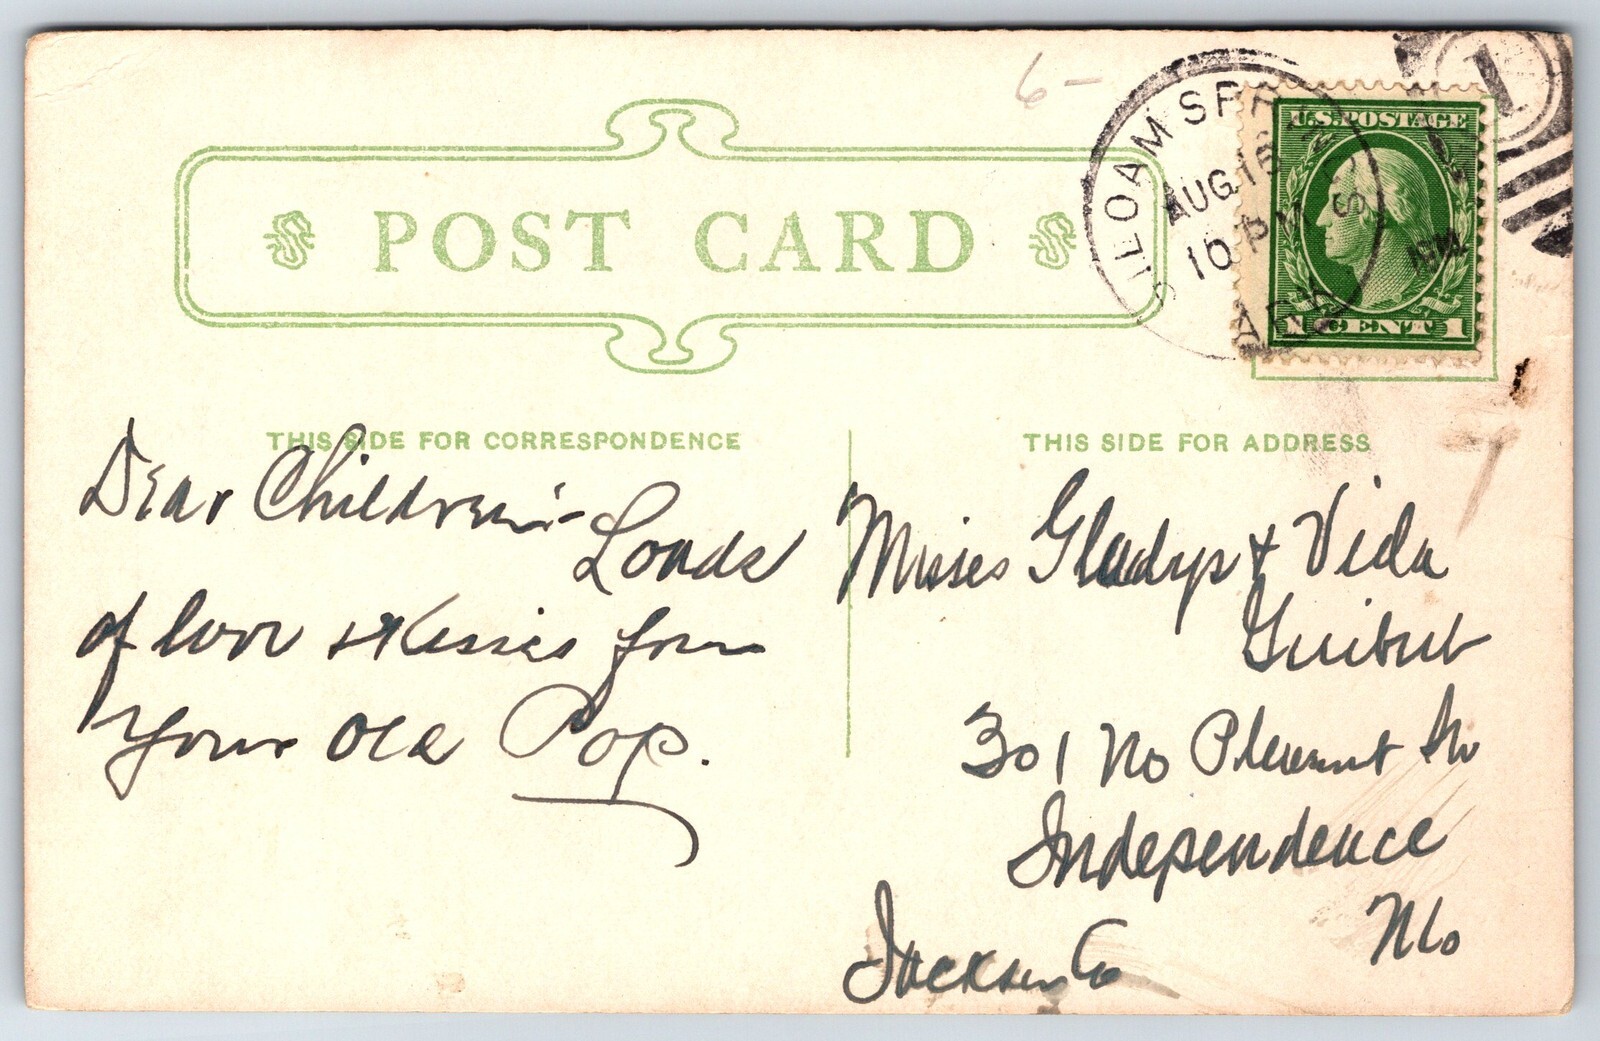 6-
SILOAM SPRINGS
AUG 18
10 PM
ARK.
1
U.S. POSTAGE
1 CENT 1
POST CARD
THIS SIDE FOR CORRESPONDENCE
THIS SIDE FOR ADDRESS
Dear Children:-
Loads
of love & Kisses from
Your Old Pop.
Misses Gladys & Vida
301 No Pleasant St
Independence
Mo
Jackson Co